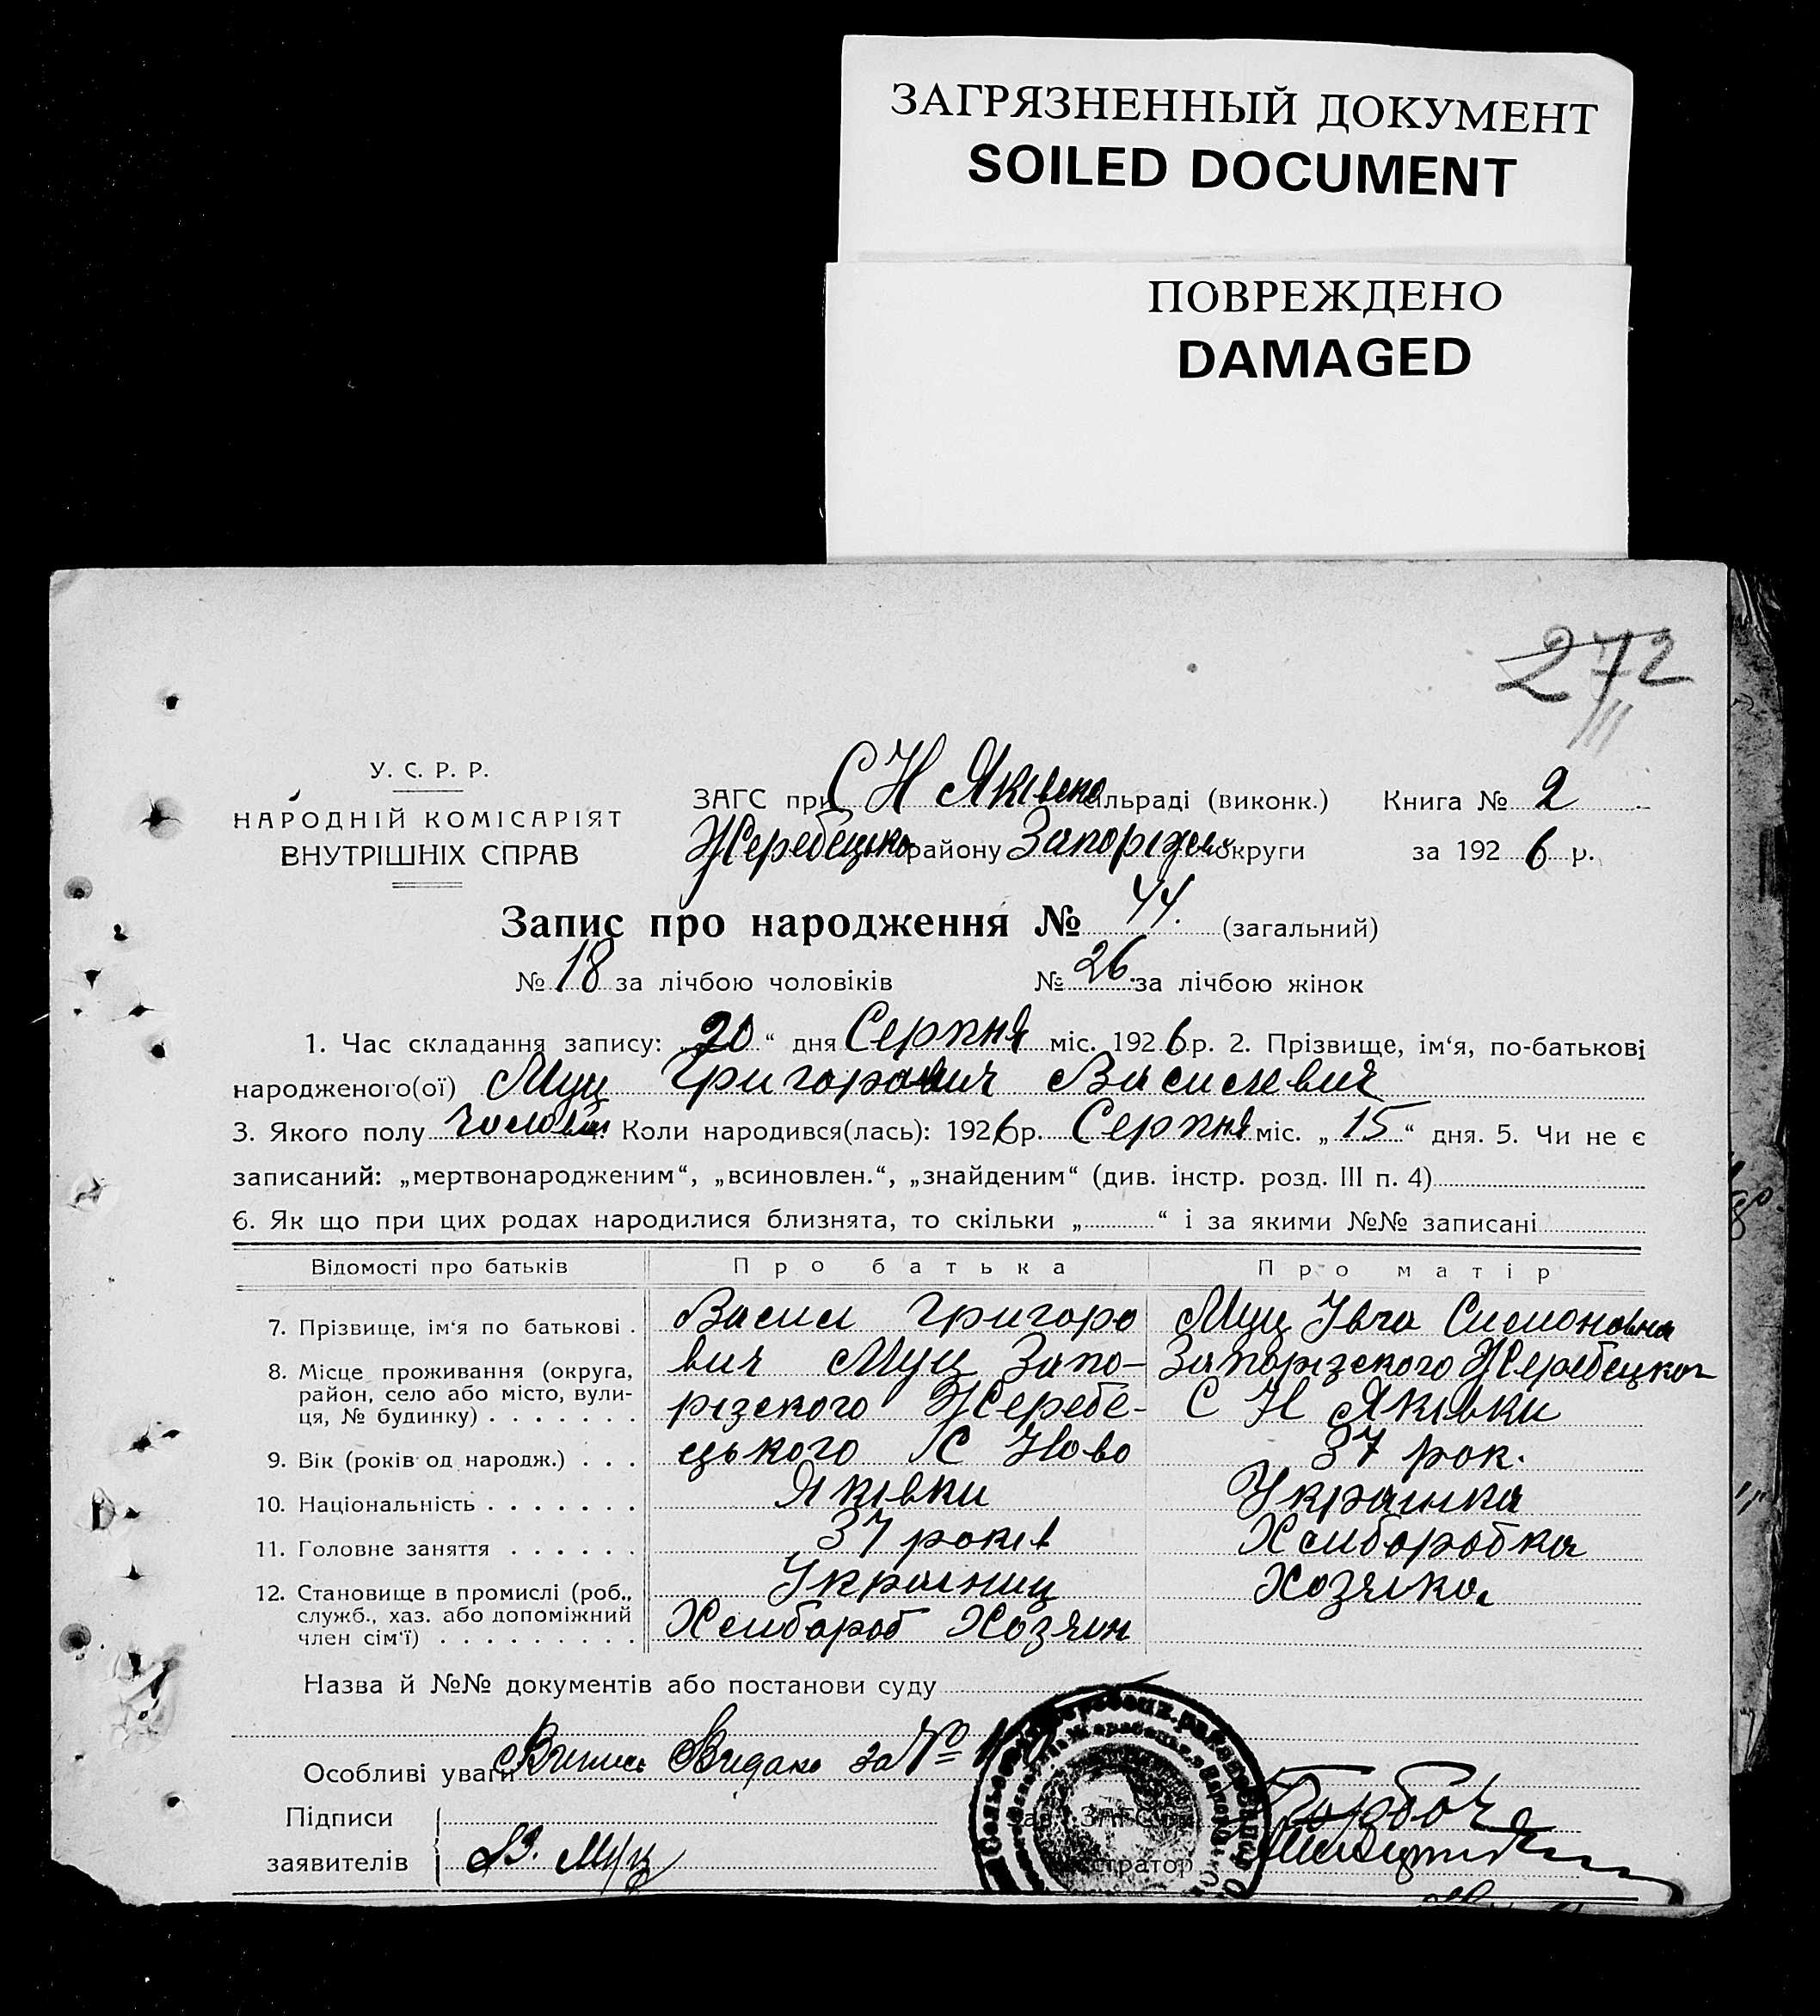 ЗАГРЯЗНЕННЫЙ ДОКУМЕНТ
SOILED DOCUMENT
ПОВРЕЖДЕНО
DAMAGED
272
У. С. Р. Р.
НАРОДНІЙ КОМІСАРІЯТ
ВНУТРІШНІХ СПРАВ
ЗАГС при С Н Яківско сільраді (виконк.) Книга № 2
Жеребецько району Запоріжск округи за 1926 р.
Запис про народження № 44. (загальний)
№ 18 за лічбою чоловіків № 26. за лічбою жінок
1. Час складання запису: „20“ дня Серпня міс. 1926 р. 2. Прізвище, ім‘я, по-батькові
народженого(ої) Муц Григорович Василевич
3. Якого полу Коли народився(лась): 1926 р. Серпня міс. „15“ дня. 5. Чи не є
записаний: „мертвонародженим“, „всиновлен.“, „знайденим“ (див. інстр. розд. III п. 4)
6. Як що при цих родах народилися близнята, то скільки „ “ і за якими №№ записані
Відомості про батьків Про батька Про матір
7. Прізвище, ім‘я по батькові . Васил Григоро Муц Івга Симоновна
8. Місце проживання (округа, район, село або місто, вулиця, № будинку) . . . . . . . вич Муц Запо- Запорізского Жеребецког
різского Жеребе- С Н Яківки
9. Вік (років од народж.) . . . цького С Ново 37 рок.
10. Національність . . . . . . . Яківки Українка
11. Головне заняття . . . . . . 37 років Хлиборобка
12. Становище в промислі (роб., Україниц Хозяйка
служб., хаз. або допоміжний
член сім‘ї) . . . . . . . . . Хлибороб Хозяин
Назва й №№ документів або постанови суду
Особливі уваги Випись Видано за №
Підписи
заявителів В. Муц
Зав. ЗАГС‘ом Горбач
Реєстратор